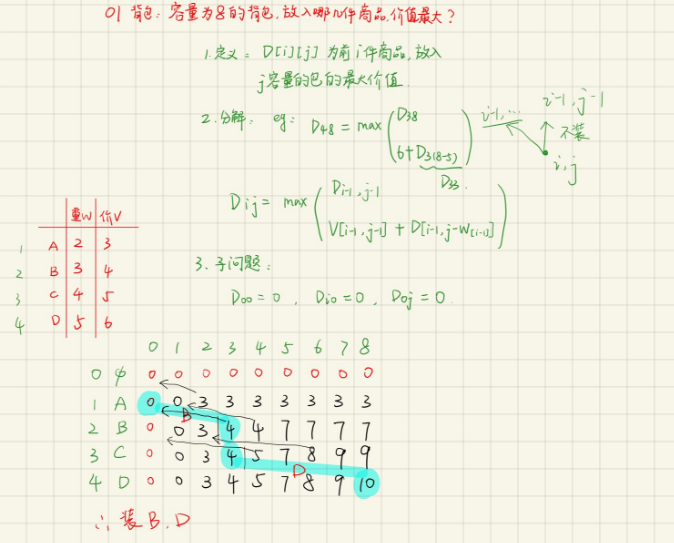 01背包：容量为8的背包，放入哪几件商品，价值最大？
1.定义：D[i][j]为前i件商品，放入
j容量的包的最大价值.
2.分解：eg：D48 = max
D38
6+D3(8-5)
D33.
i-1,...
i-1, j-1
不装
i,j
Dij = max
Di-1, j-1
V[i-1, j-1] + D[i-1, j-W[i-1]]
重W 价V
1 A 2 3
2 B 3 4
3 C 4 5
4 D 5 6
3、子问题：
D00 = 0 , Di0 = 0 , D0j = 0.
0 1 2 3 4 5 6 7 8
0 φ 0 0 0 0 0 0 0 0 0
1 A 0 0 3 3 3 3 3 3 3
B
2 B 0 0 3 4 4 7 7 7 7
3 C 0 0 3 4 5 7 8 9 9
D
4 D 0 0 3 4 5 7 8 9 10
∴ 装B.D